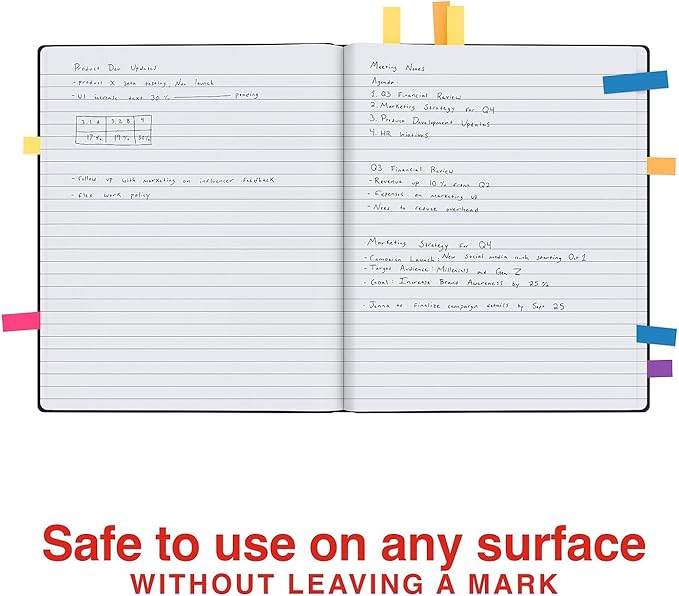 Product Dev Updates
- product X beta testing, Nov launch
- UI increase text 30% pending
3.1 A 3.2 B 4
17% 19% 30%
- follow up with marketing on influencer feedback
- flex work policy
Meeting Notes
Agenda:
1. Q3 Financial Review
2. Marketing Strategy for Q4
3. Product Development Updates
4. HR Iniatives
Q3 Financial Review
- Revenue up 10% from Q2
- Expenses on marketing up
- Need to reduce overhead
Marketing Strategy for Q4
- Campaign Launch: New social media starting Oct 1
- Target Audience: Millenials and Gen Z
- Goal: Increase Brand Awareness by 25%
- Jenna to finalize campaign details by Sept 25
Safe to use on any surface
WITHOUT LEAVING A MARK